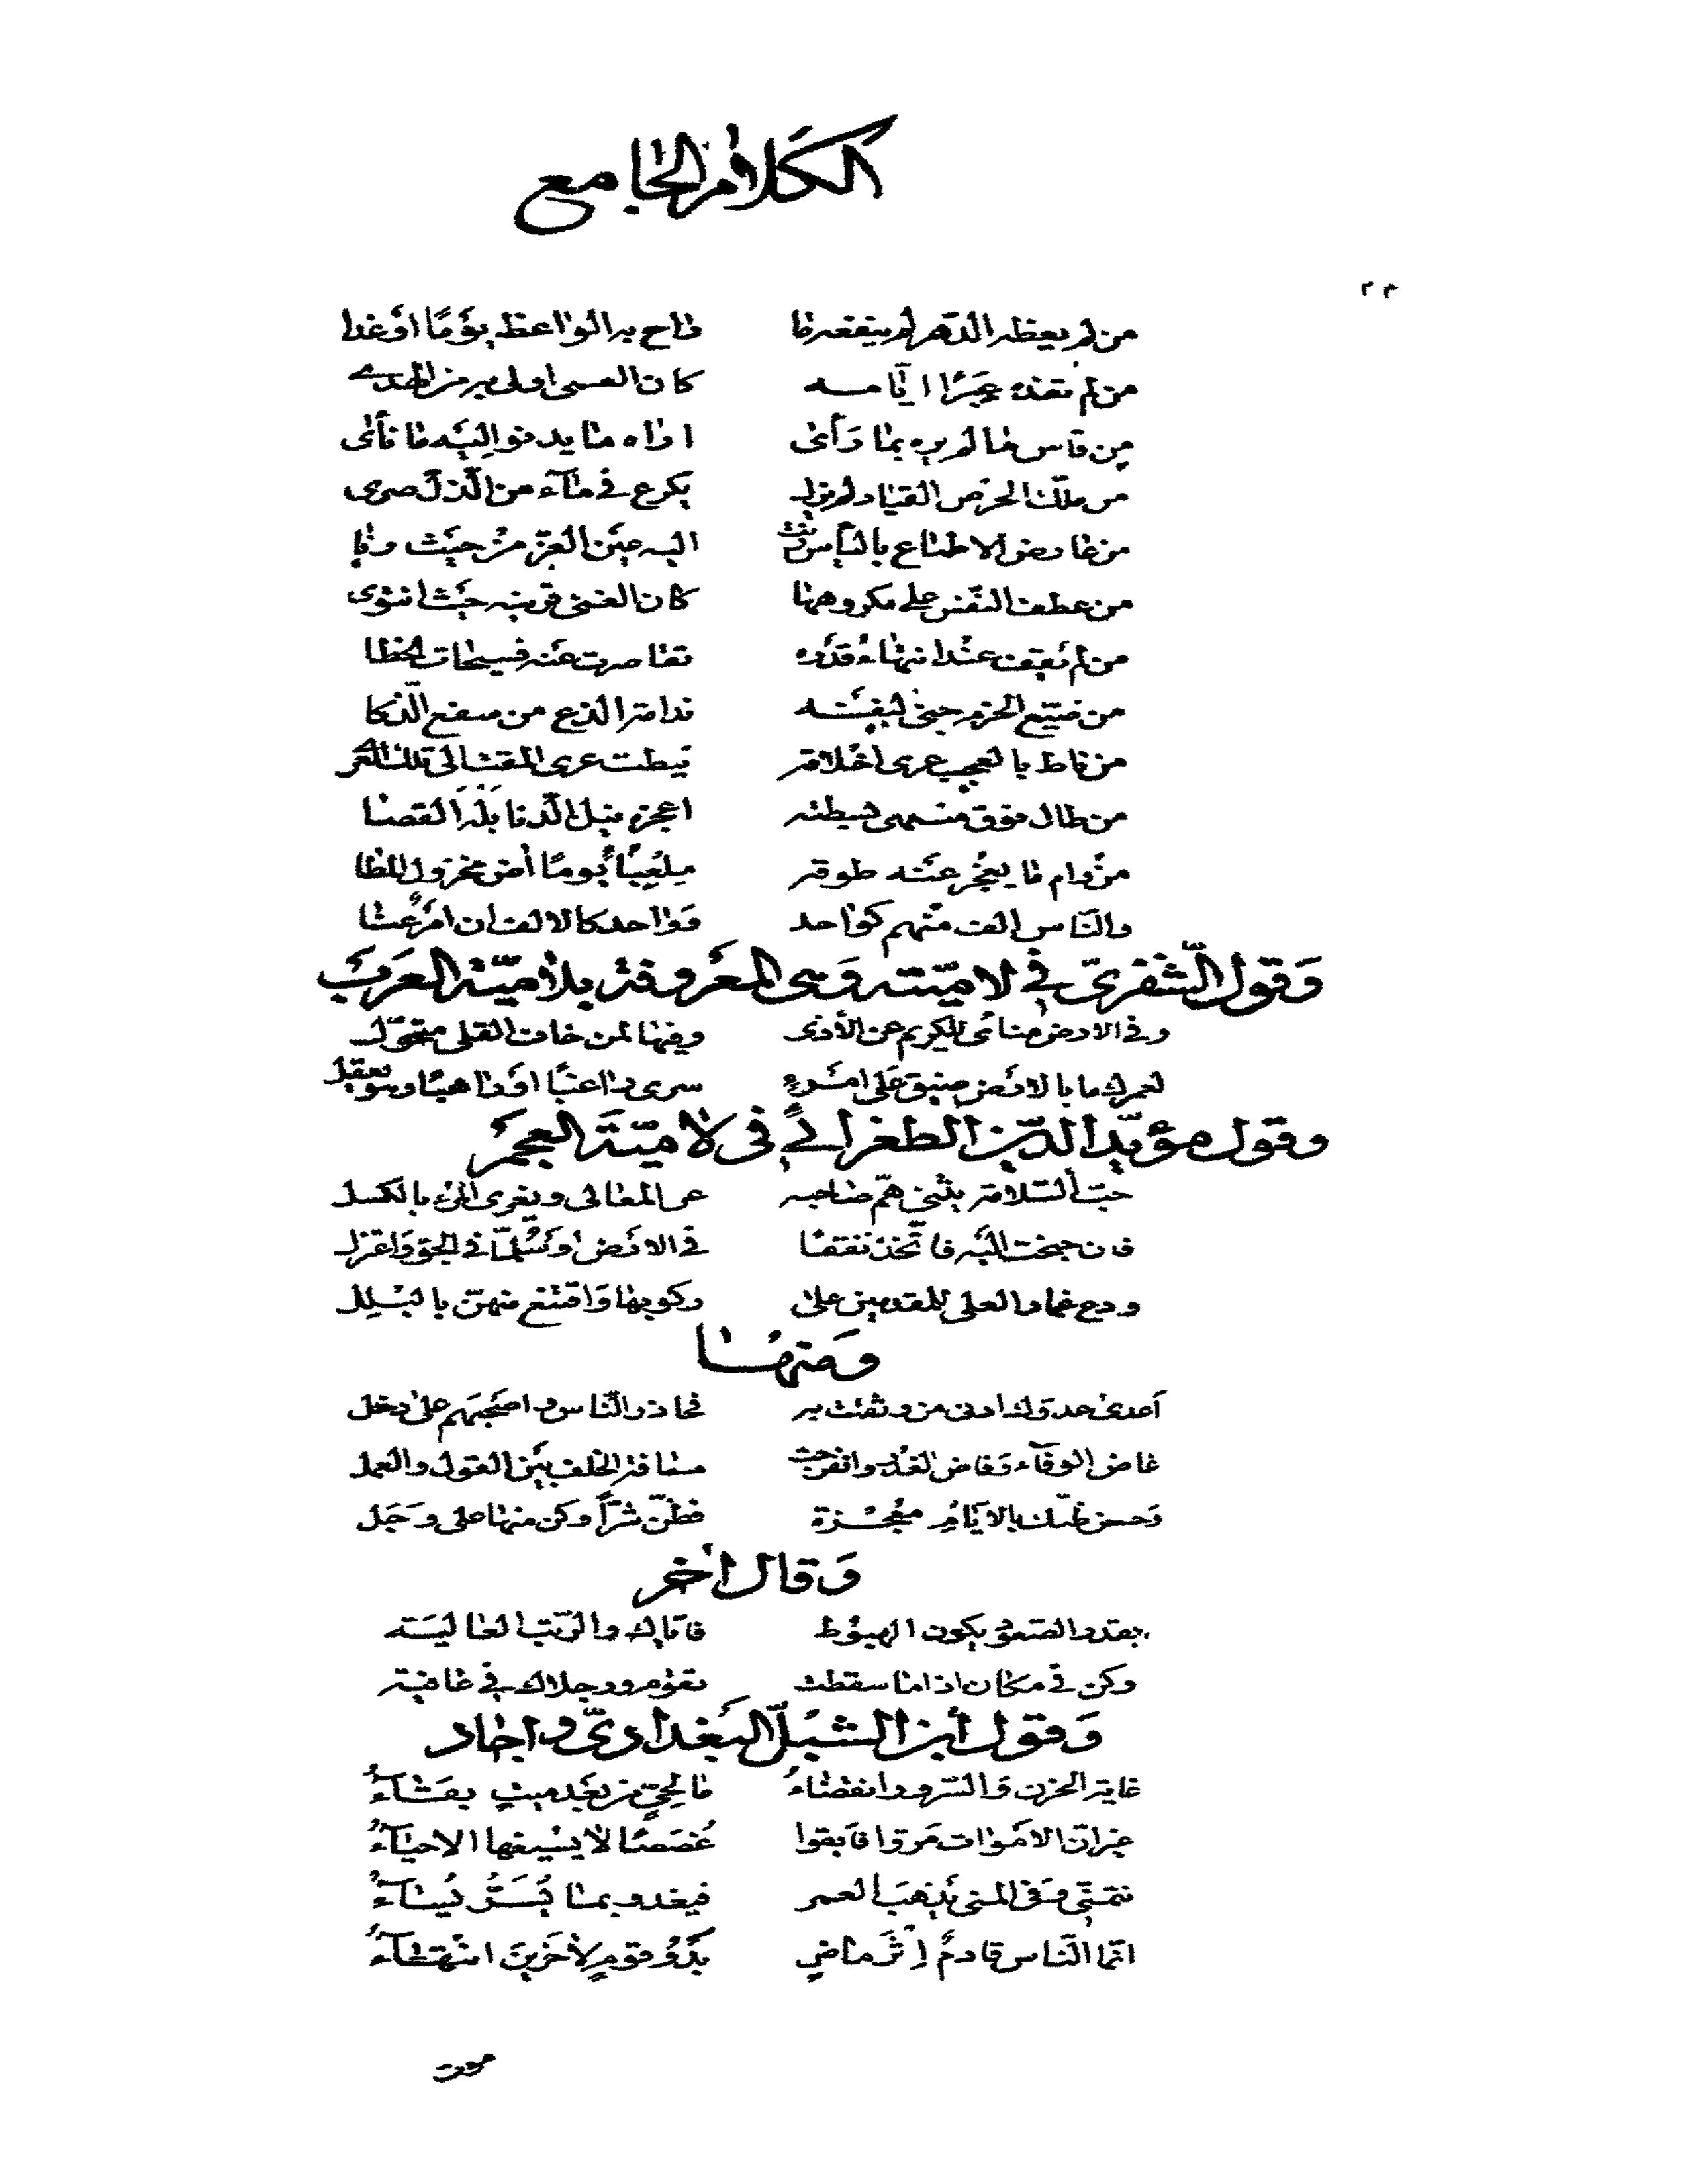 الكلام الجامع
٢٢
من لم يعظه الدهر لم ينفعه ما راح به الواعظ يوما او غدا
من لم تفده عبرا ايامه كان العمى اولى به من الهدى
من قاس ما لم يره بما رأى اراه ما يدنو اليه ما نأى
من ملك الحرص القياد لم يزل يكرع في ماء من الذل صرى
من عارض الاطماع بالياس رنت اليه عين العز من حيث رنا
من عطف النفس على مكروهها كان الغنى قرينه حيث انتوى
من لم يقف عند انتهاء قدره تقاصرت عنه فسيحات الخطا
من ضيع الحزم جنى لنفسه ندامة الذع من سفع الذكا
من ناط بالعجب عرى اخلاقه نيطت عرى المقت الى تلك العرى
من طال فوق منتهى بسطته اعجزه نيل الدنا بله القصا
من رام ما يعجز عنه طوقه ملعبأ يوما أض مخزول المطا
والناس الف منهم كواحد وواحد كالالف ان امر عنا
وَقول الشّنفريّ في لاميّته وهى المعروفة بلاميّة العرب
وفي الارض منائى للكريم عن الأذى وفيها لمن خاف القلى متحوّل
لعمرك ما بالارض ضيق على امرء سرى راغبا او راهبا وهو يعقل
وقول مؤيّد الدّين الطغرائي في لاميّة العجم
حبّ السّلامة يثنى همّ صاحبه عن المعالى ويغرى المرء بالكسل
فان جنحت اليه فاتّخذ نفقا في الارض او سلّما في الجوّ واعتزل
ودع غمار العلى للمقدمين على ركوبها واقتنع منهنّ بالبلل
وَمنها
أعدى عدوّك ادنى من وثقت به فحاذر النّاس واصحبهم على دخل
غاض الوفاء وفاض الغدر وانفرجت مسافة الخلف بين القول والعمل
وحسن ظنّك بالايّام معجزة فظنّ شرّاً وكن منها على وَجَل
وَقال أخر
بقدر الصّعود يكون الهبوط فايّاك والرّتب العاليه
وكن في مكان اذا ما سقطت تقوم ورجلاك في عافية
وَقول أبن الشبل البغدادىّ واجاد
غاية الحزن وَالسّرور انقضاءُ ما لحىٍّ من بعد ميتٍ بقاءُ
غير انّ الاموات مرّوا فابقوا غُصَصًا لا يسيغها الاحياءُ
نتمنّى وفى المنى يذهب العمر فيغدو بما يُسَرُّ يُساءُ
انّما النّاس قادمٌ إثر ماضٍ بدؤُ قومٍ لأخرين انتهاءُ
موت